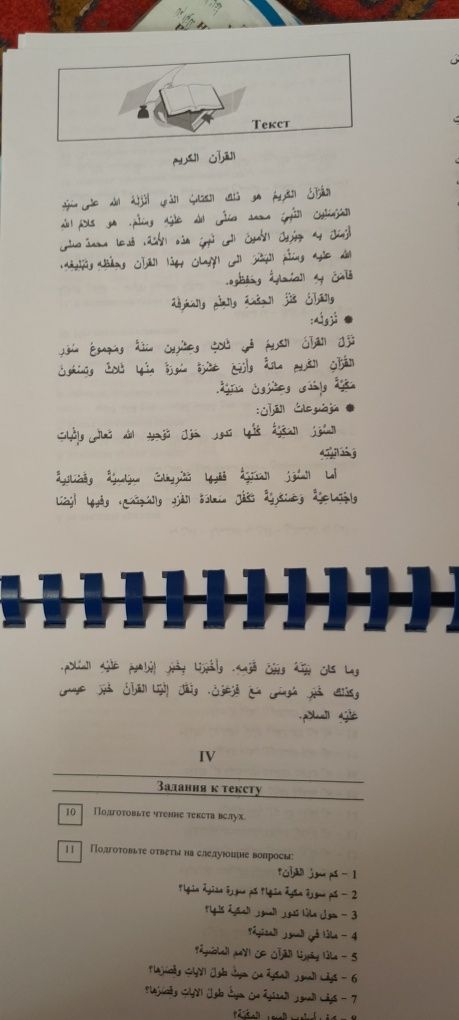 Текст
القرآن الكريم
القُرْآنُ الكَرِيمُ هو ذلك الكتابُ الذي أَنْزَلَهُ الله على سَيِّدِ
المُرْسَلِين النَّبِيِّ محمد صَلَّى الله عَلَيْهِ وسَلَّمَ. هو كلامُ اللهِ
أَرْسَلَ به جِبْرِيلَ الأَمينَ الى نَبِيِّ هذه الأُمَّة، فدعا محمدٌ صلى
الله عليه وسَلَّمَ البَشَرَ الى الإيمان بهذا القرآن وحِفْظِهِ وتَبْلِيغِهِ،
فآمَنَ بِهِ الصَّحابةُ وحَفِظُوه.
والقرآنُ كَنْزُ الحِكْمَةِ والعِلْمِ والمَعْرِفَة
● نُزولُه:
نَزَلَ القرآن الكريمُ في ثَلاثٍ وعِشْرِين سَنَةً ومَجموعُ سُوَرِ
القُرْآنِ الكَرِيمِ مائةٌ وأَرْبَعَ عَشْرَةَ سُورَةً مِنْها ثَلاثٌ وتِسْعُونَ
مَكِّيَّةً وإحْدَى وعِشْرُونَ مَدَنِيَّةً.
● مَوْضُوعاتُ القرآن:
السُّوَرُ المَكِّيَّةُ كُلُّها تدور حَوْلَ تَوْحِيدِ الله تَعالى وإثْباتِ
وَحْدانِيَّتِهِ
أما السُّوَرُ المَدَنِيَّةُ ففيها تَشْرِيعاتٌ سِياسِيَّةٌ وقَضائِيةٌ
واجْتِماعِيَّةٌ وعَسْكَرِيَّةٌ تَكْفُلُ سَعادَةَ الفَرْدِ والمُجتَمَعِ، وفيها أيْضًا
وما كان بَيْنَهُ وبَيْنَ قَوْمِهِ. وأَخْبَرَنا بِخَبَرِ إبْراهيمَ عَلَيْهِ السَّلام.
وكذلك خَبَرِ مُوسَى مَعَ فِرْعَوْنَ. ونَقَلَ إلَيْنا القرآنُ خَبَرَ عيسى
عَلَيْهِ السلام.
IV
Задания к тексту
10 Подготовьте чтение текста вслух.
11 Подготовьте ответы на следующие вопросы:
1 – كم سورُ القرآن؟
2 – كم سورة مكية منها؟ كم سورة مدنية منها؟
3 – حول ماذا تدور السور المكية كلها؟
4 – ماذا في السور المدنية؟
5 – ماذا يخبرنا القرآن عن الامم الماضية؟
6 – كيف السور المكية من حيثُ طول الايات وقِصَرُها؟
7 – كيف السور المدنية من حيثُ طول الايات وقِصَرُها؟
8 – كيف أسلوب السور المكيّة؟